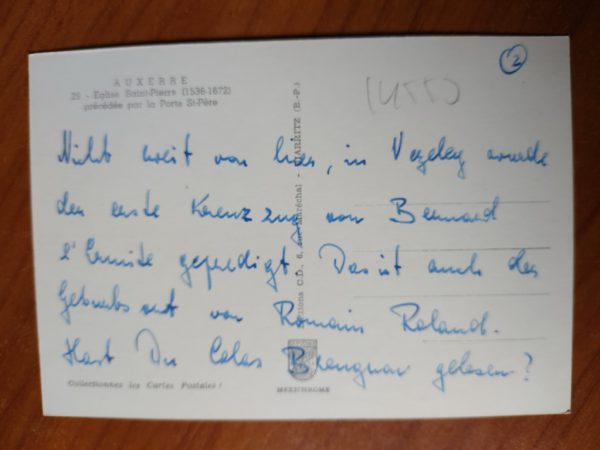 AUXERRE
29 - Eglise Saint-Pierre (1536-1672)
précédée par la Porte St-Père
2
Nicht weit von hier, in Vezeley wurde
der erste Kreuzzug von Bernard
l'Ermite gepredigt. Das ist auch der
Geburtsort von Romain Roland.
Hast Du Colas Breugnon gelesen?
Editions C.D., 6, rue Maréchal - BIARRITZ (B.-P.)
Collectionnez les Cartes Postales !
MEXICHROME